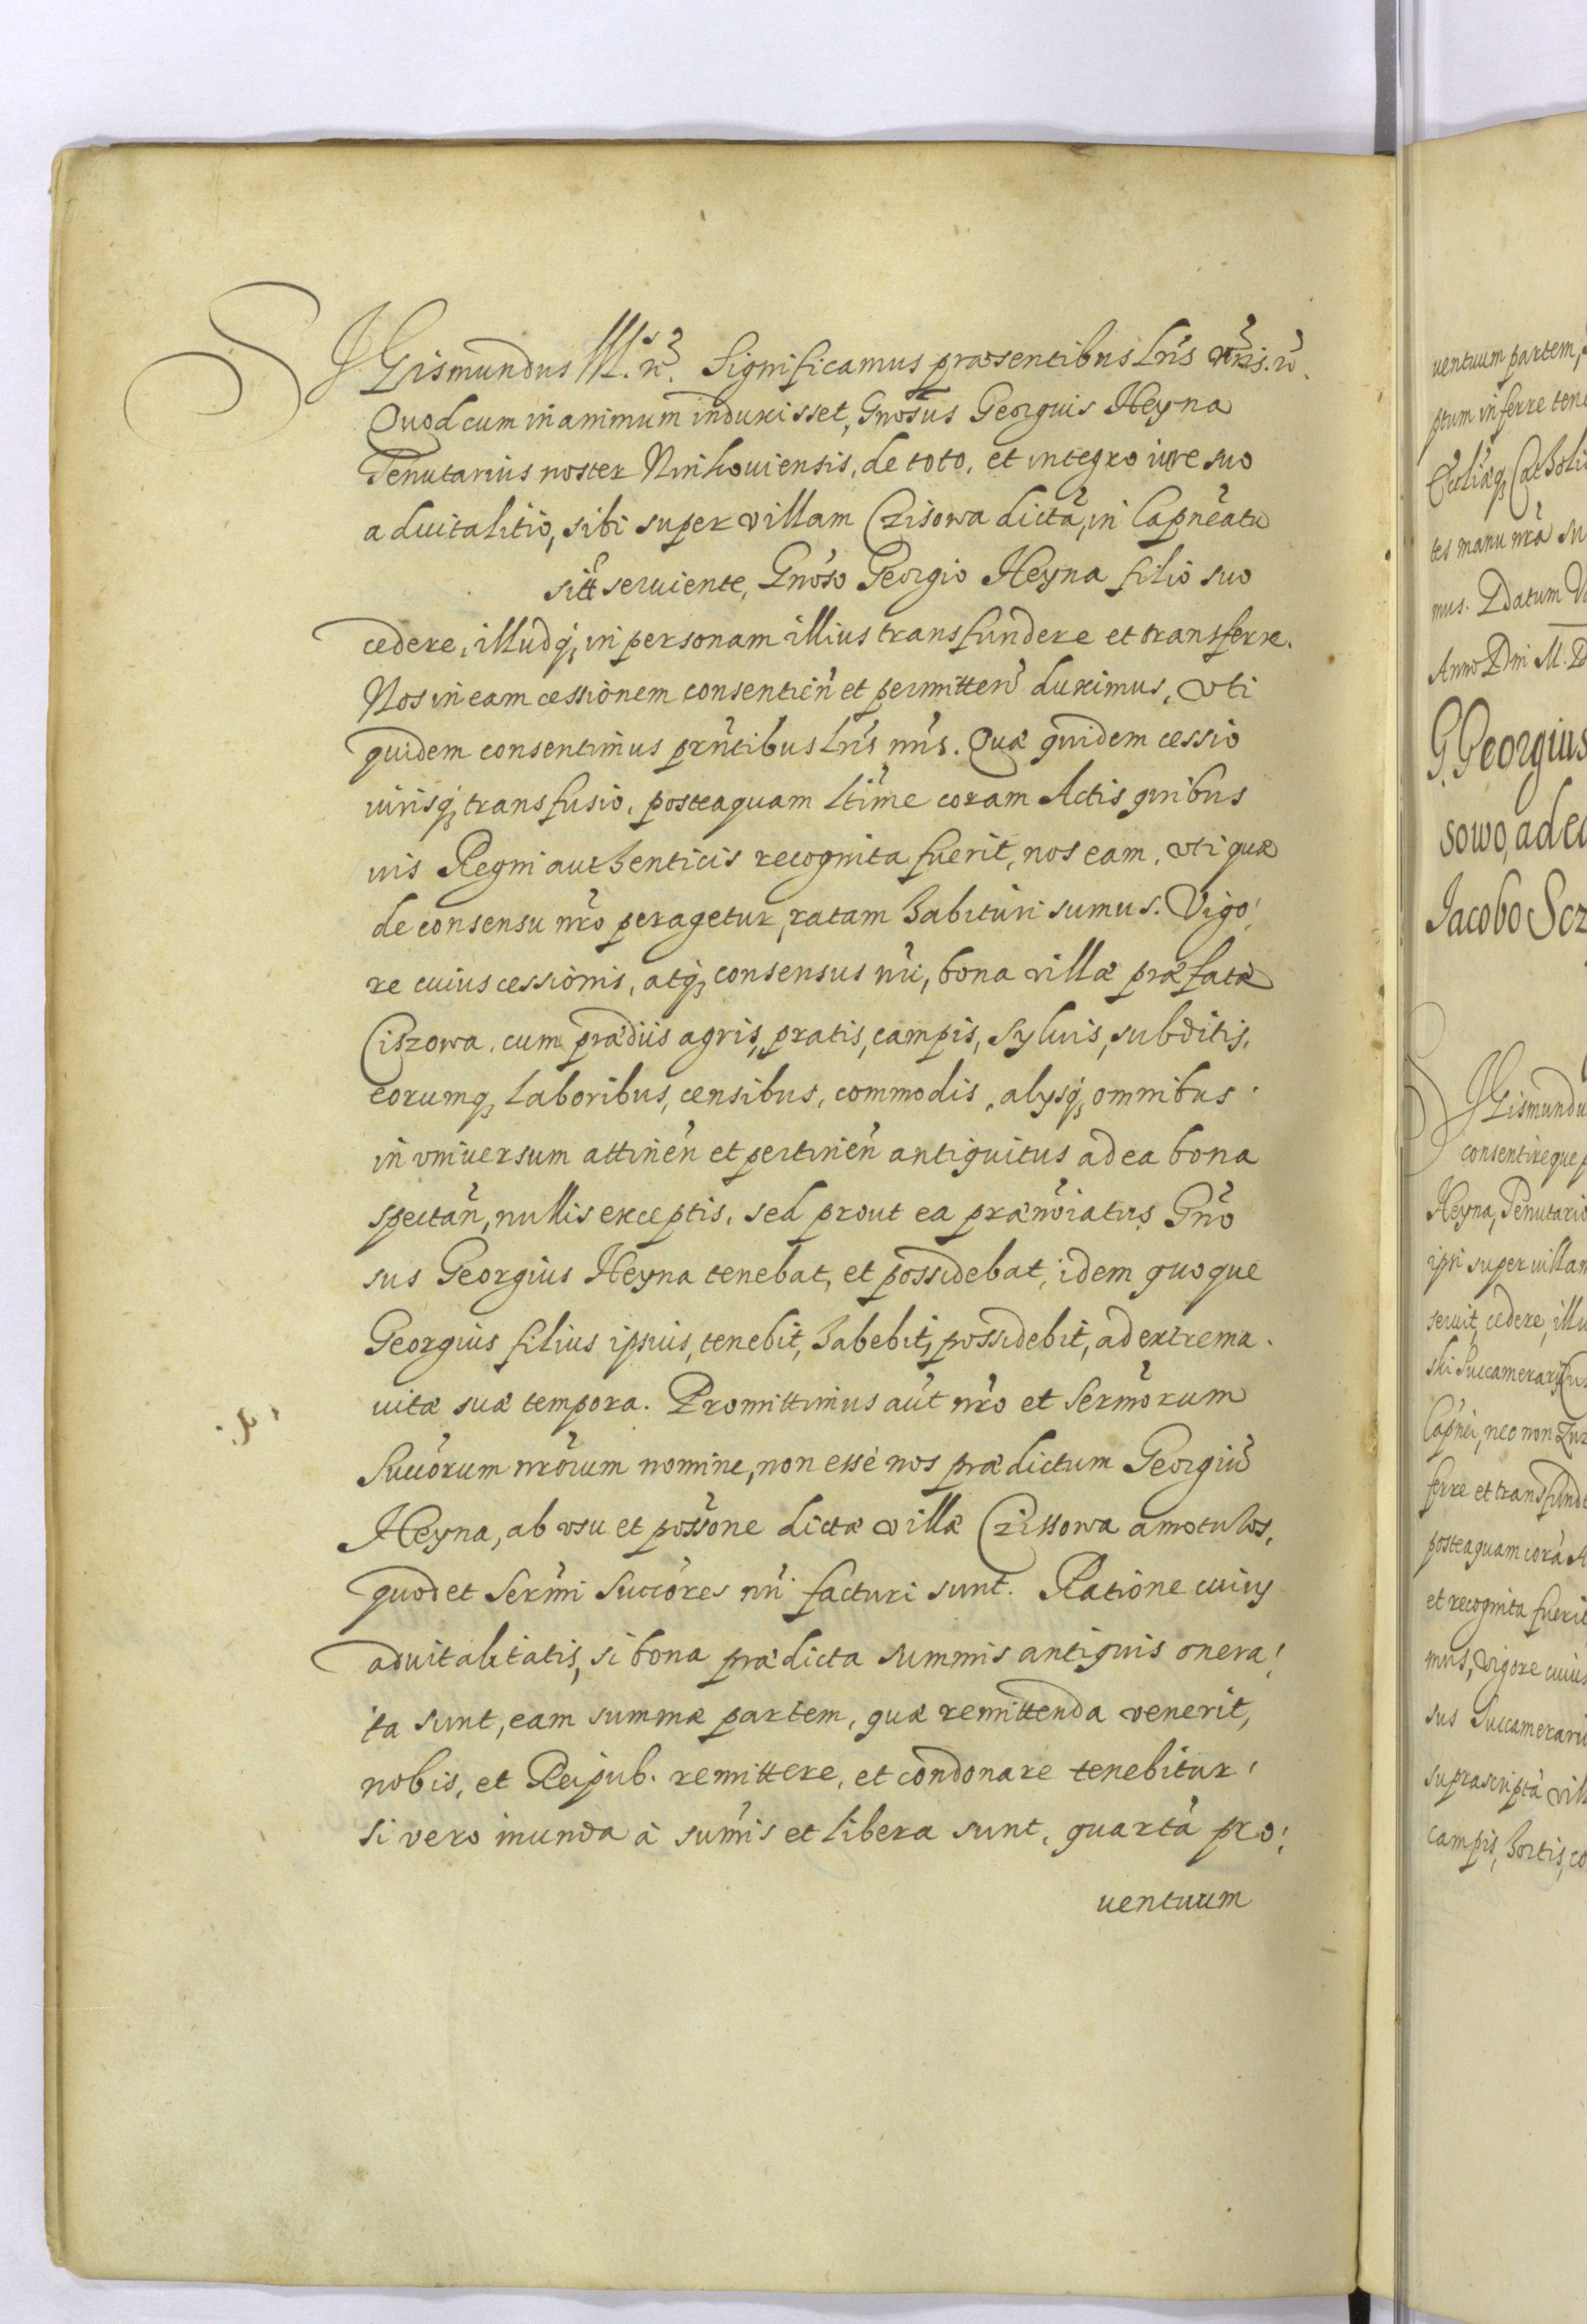 SIGismundus III. rē. Significamus præsentibus Lris nris. rō.
Quod cum in animum induxisset, Gnosus Georgius Heyna
Tenutarius noster Ninkouiensis, de toto, et integro iure suo
aduitalitio, sibi super villam Czisowa dictã, in Capneatu
sitt seruiente, Gnoso Georgio Heyna filio suo
cedere, illudq, in personam illius transfundere et transferre.
Nos in eam cessionem consentien et permitten duximus, vti
quidem consentimus prntibus Lris nris. Quæ quidem cessio
iurisq, transfusio, posteaquam Ltime coram Actis quibus
uis Regni authenticis recognita fuerit, nos eam, vti quæ
de consensu nro peragetur, ratam habituri sumus. Vigo
re cuius cessionis, atq, consensus nri, bona villæ præfatæ
Ciszowa, cum prædiis agris, pratis, campis, syluis, subditis,
eorumq, laboribus, censibus, commodis, alysq, omnibus
in vniuersum attinen et pertinen antiquitus ad ea bona
spectan, nullis exceptis, sed prout ea prænoiatus Gno
sus Georgius Heyna tenebat, et possidebat, idem quoque
Georgius filius ipsius, tenebit, habebit, possidebit, ad extrema
uitæ suæ tempora. Promittimus aut nro et Sermorum
Succorum nrorum nomine, non esse nos prædictum Georgiũ
Heyna, ab vsu et possone dictæ villæ Czissowa amoturos,
quod et Sermi Succores nri facturi sunt. Ratione cuius
aduitalitatis, si bona prædicta summis antiquis onera
ta sunt, eam summæ partem, quæ remittenda venerit,
nobis, et Reipub. remittere, et condonare tenebitur
si vero munda à sumis et libera sunt, quartã pro
uentuum
uentuum partem,
ptum inferre tene
Eccliæq, Catholi
tes manu nra su
mus. Datum
Anno Dni M. D
G. Georgius
sowo, ad ea
Jacobo Scz
SIGismundu
consentireque p
Heyna, Tenutario
ipsi super uillam
seruit, cedere, illu
ski Succamerary
Capnei, nec non
ferre et transfund
posteaquam corã A
et recognita fuerit
mus, Vigore cuius
sus Succamerarii
suprascriptã vill
campis, hortis, co